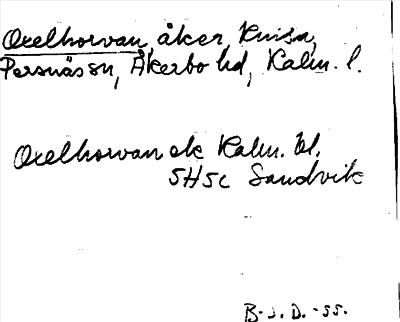 Oxelhorvan, åker, Knisa,
Persnäs sn, Åkerbo hd, Kalm. l.
Oxelhorvan ek Kalm. bl.
5H5c Sandvik
B-J. D. -55.